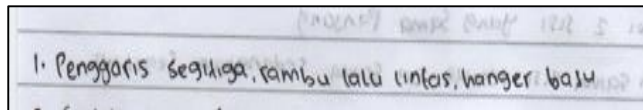 1. Penggaris segitiga, rambu lalu lintas, hanger baju